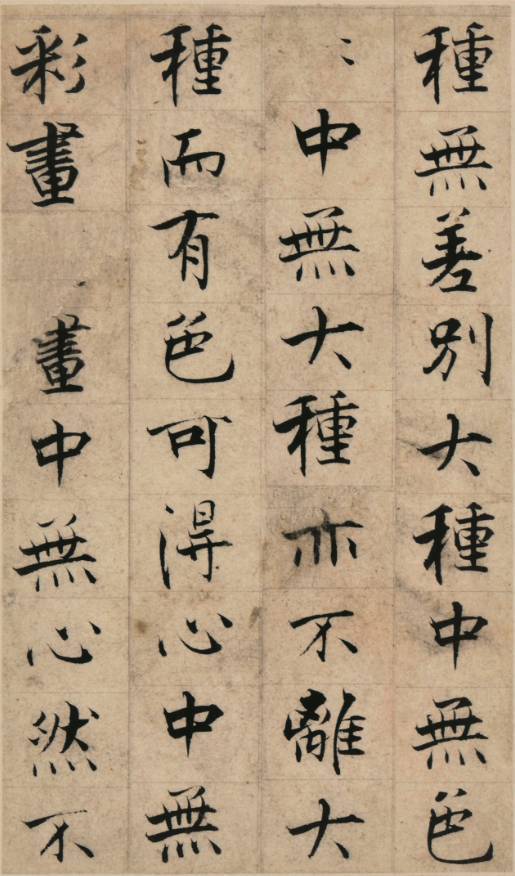 種無差別大種中無色
〻中無大種亦不離大
種而有色可得心中無
彩畫　畫中無心然不